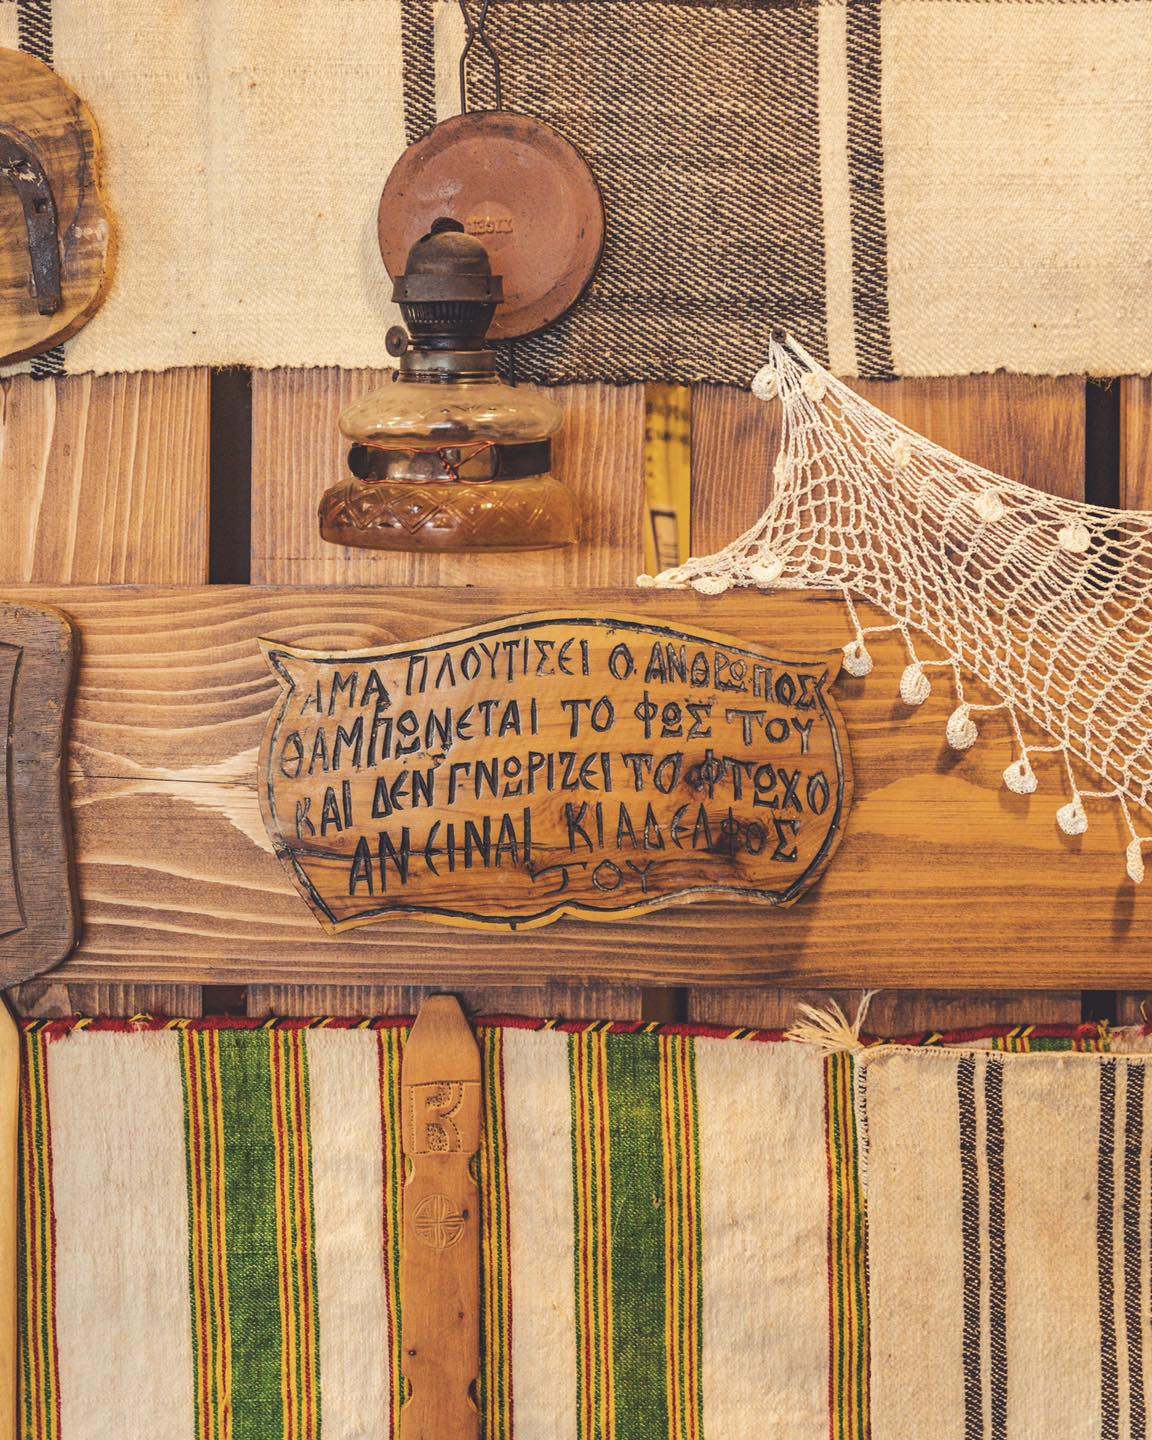 ΑΜΑ ΠΛΟΥΤΙΣΕΙ Ο ΑΝΘΡΩΠΟΣ
ΘΑΜΠΩΝΕΤΑΙ ΤΟ ΦΩΣ ΤΟΥ
ΚΑΙ ΔΕΝ ΓΝΩΡΙΖΕΙ ΤΟ ΦΤΩΧΟ
ΑΝ ΕΙΝΑΙ ΚΙ ΑΔΕΛΦΟΣ
ΤΟΥ